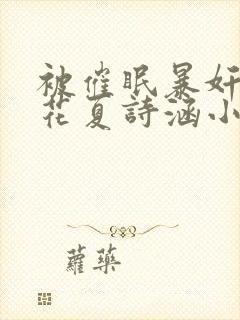 被催眠暴奸
花夏詩涵小
蘿藥